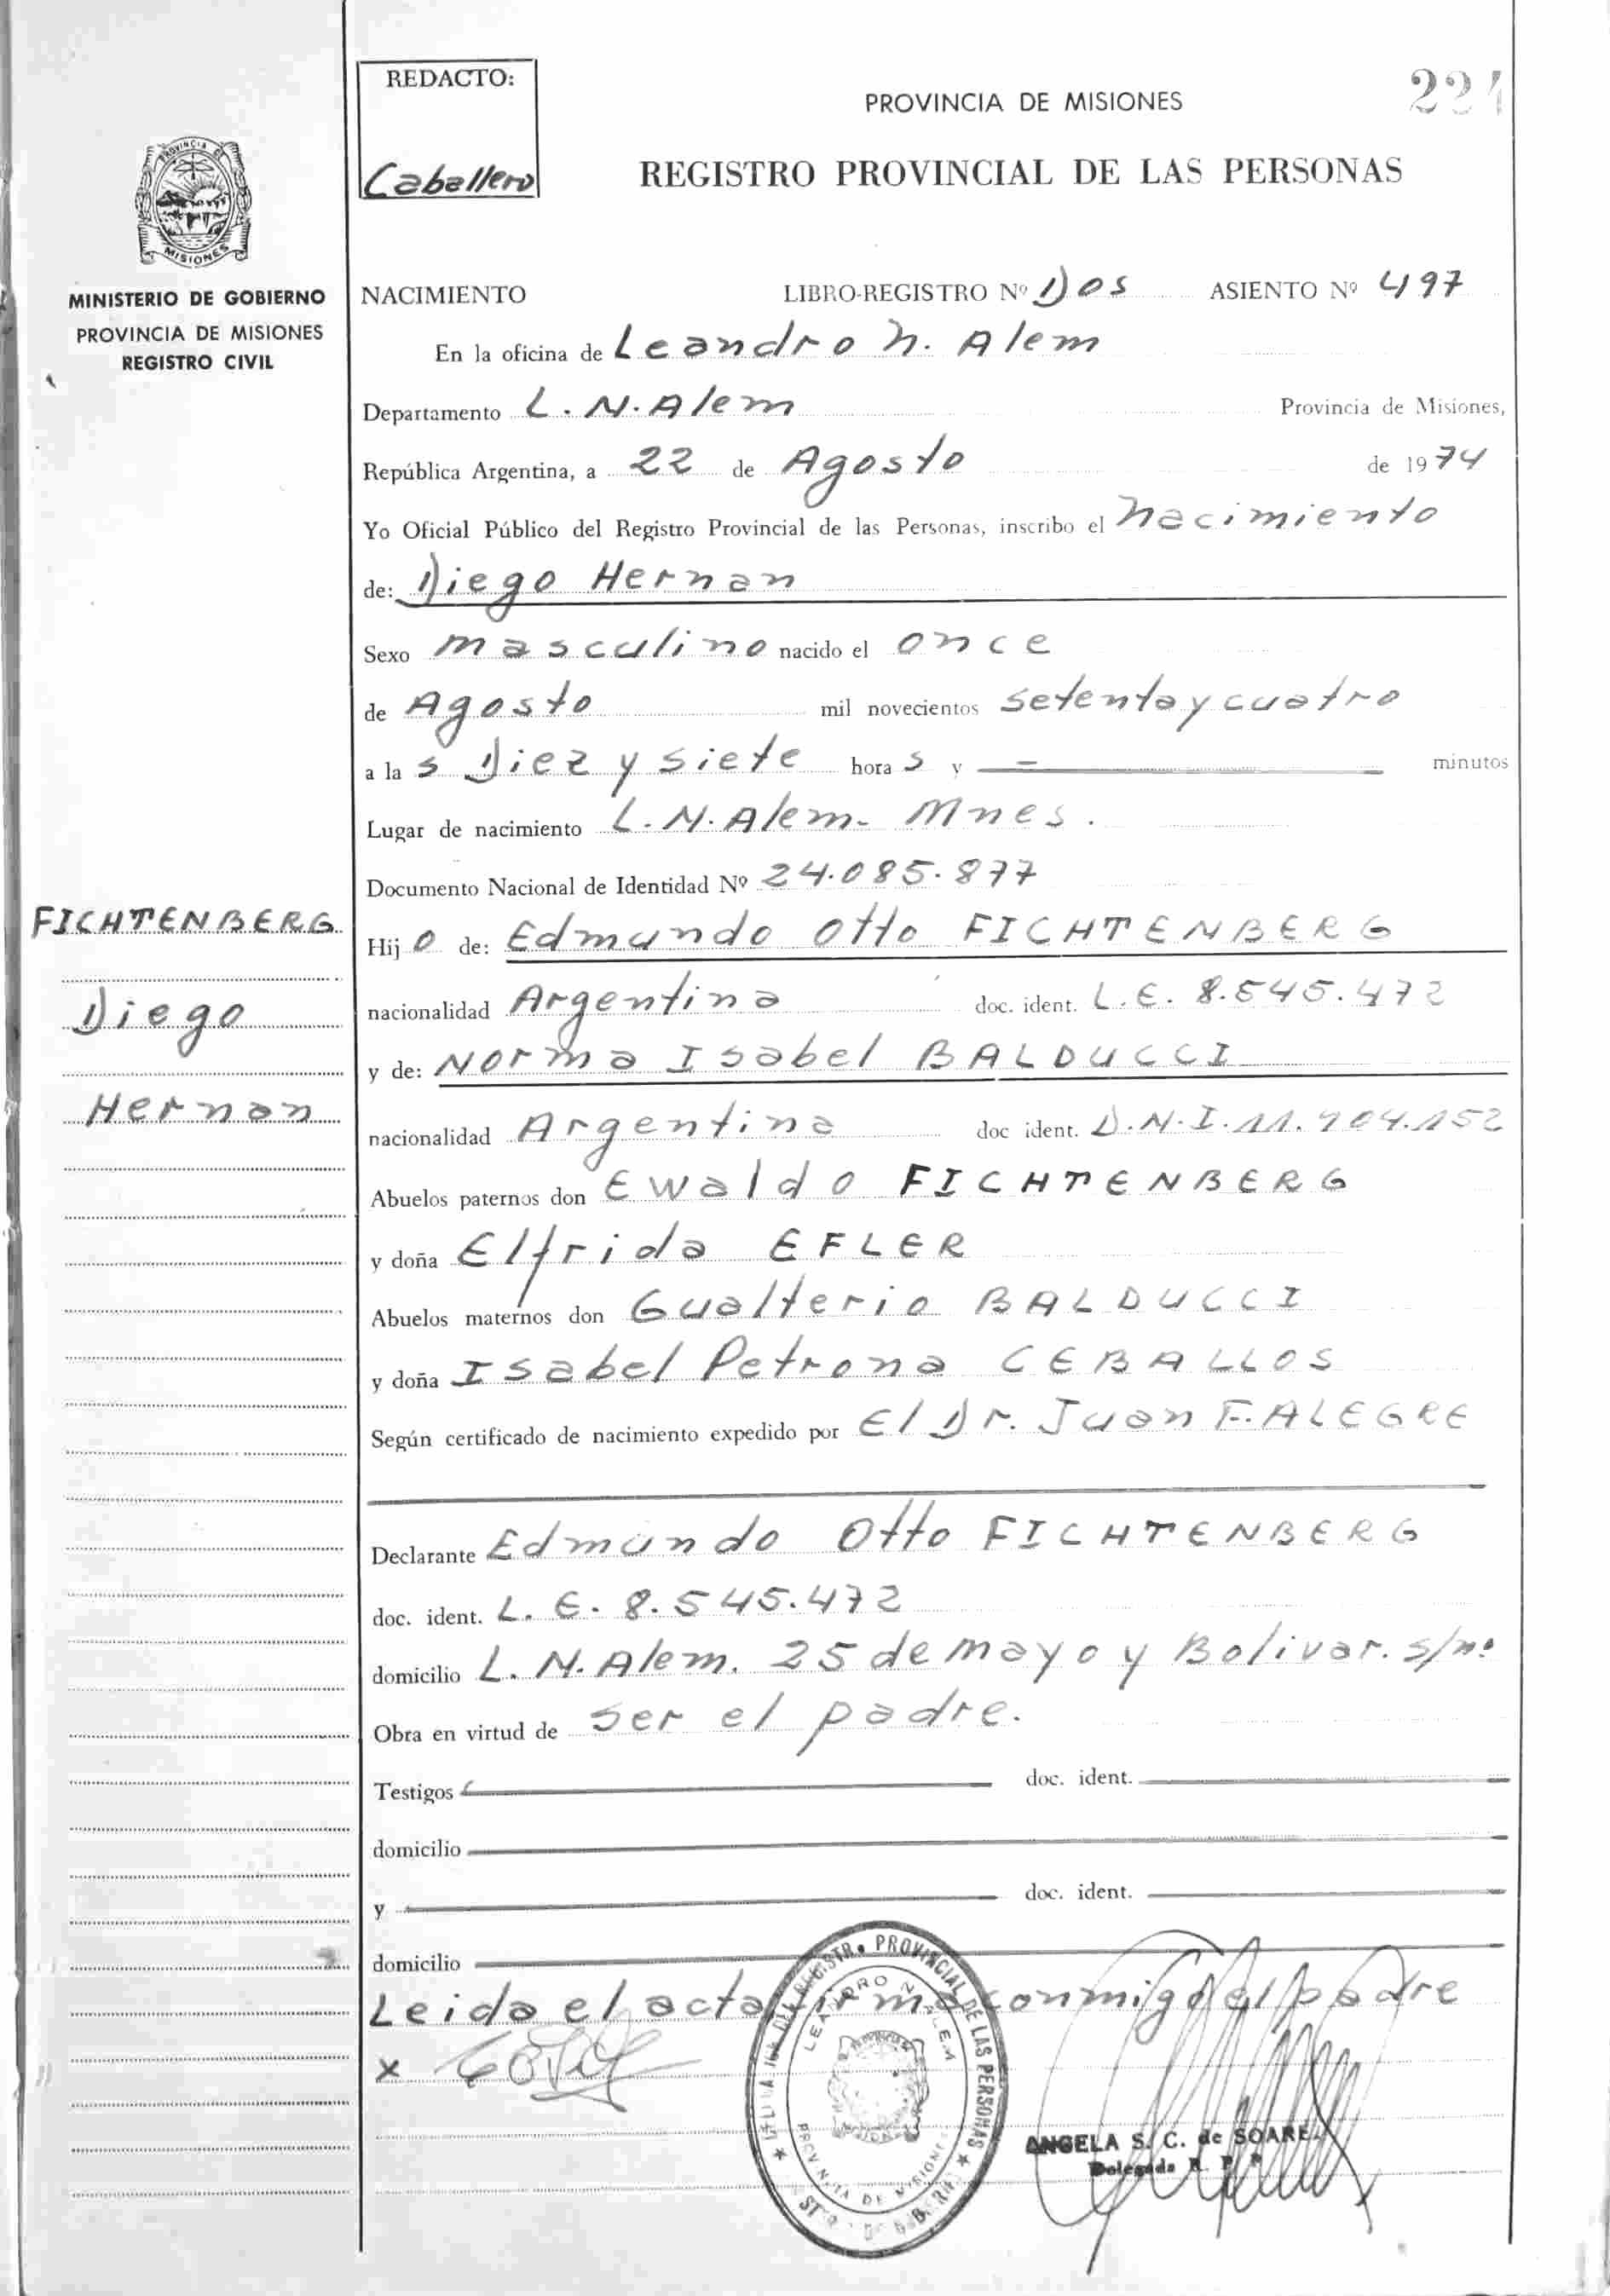 REDACTO:
Caballero
PROVINCIA DE MISIONES
REGISTRO PROVINCIAL DE LAS PERSONAS
PROVINCIA DE
MISIONES
MINISTERIO DE GOBIERNO
PROVINCIA DE MISIONES
REGISTRO CIVIL
NACIMIENTO LIBRO-REGISTRO Nº Dos ASIENTO Nº 497
En la oficina de Leandro N. Alem
Departamento L. N. Alem Provincia de Misiones,
República Argentina, a 22 de Agosto de 1974
Yo Oficial Público del Registro Provincial de las Personas, inscribo el nacimiento
de: Diego Hernan
Sexo masculino nacido el once
de Agosto mil novecientos setenta y cuatro
a las Diez y siete horas y — minutos
Lugar de nacimiento L. N. Alem - Mnes.
Documento Nacional de Identidad Nº 24.085.877
FICHTENBERG
Diego
Hernan
Hijo de: Edmundo Otto FICHTENBERG
nacionalidad Argentina doc. ident. L. E. 8.545.472
y de: Norma Isabel BALDUCCI
nacionalidad Argentina doc ident. D.N.I. 11.904.152
Abuelos paternos don Ewaldo FICHTENBERG
y doña Elfrida EFLER
Abuelos maternos don Gualterio BALDUCCI
y doña Isabel Petrona CEBALLOS
Según certificado de nacimiento expedido por El Dr. Juan F. ALEGRE
Declarante Edmundo Otto FICHTENBERG
doc. ident. L. E. 8.545.472
domicilio L. N. Alem. 25 de mayo y Bolivar. s/nº
Obra en virtud de ser el padre.
Testigos doc. ident.
domicilio
y doc. ident.
domicilio
Leida el acta firma conmigo el padre
x
PROVINCIAL DE LAS PERSONAS
LEANDRO N. ALEM
PROVINCIA DE MISIONES
ANGELA S. C. de SOARE
Delegada R. P. P.